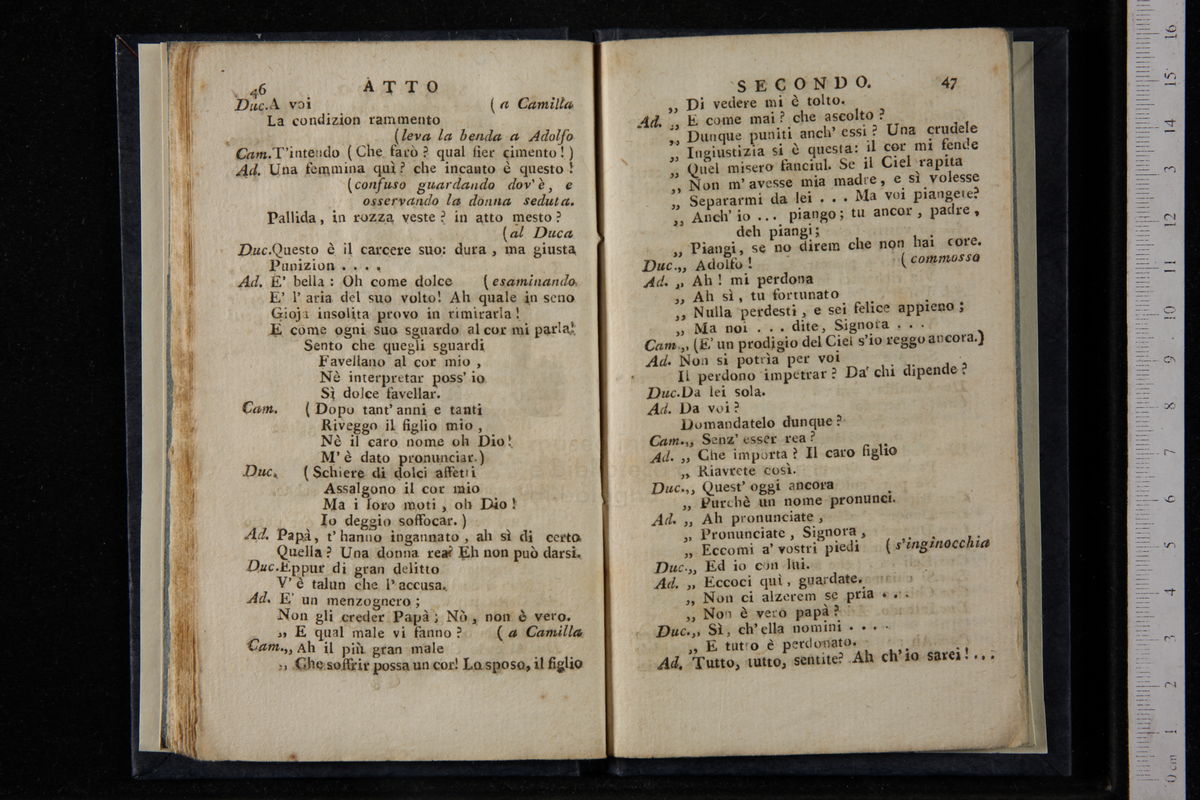 46 ATTO
Duc. A voi ( a Camilla
La condizion rammento
( leva la benda a Adolfo
Cam. T'intendo ( Che farò ? qual fier cimento ! )
Ad. Una femmina quì ? che incanto è questo !
( confuso guardando dov' è , e
osservando la donna seduta.
Pallida , in rozza veste ? in atto mesto ?
( al Duca
Duc. Questo è il carcere suo: dura , ma giusta
Punizion . . . .
Ad. E' bella : Oh come dolce ( esaminando
E' l' aria del suo volto! Ah quale in seno
Gioja insolita provo in rimirarla !
E come ogni suo sguardo al cor mi parla!
Sento che quegli sguardi
Favellano al cor mio ,
Nè interpretar poss' io
Sì dolce favellar.
Cam. ( Dopo tant' anni e tanti
Riveggo il figlio mio ,
Nè il caro nome oh Dio!
M' è dato pronunciar. )
Duc. ( Schiere di dolci affetti
Assalgono il cor mio
Ma i loro moti , oh Dio !
Io deggio soffocar. )
Ad. Papà, t' hanno ingannato , ah sì di certo
Quella ? Una donna rea? Eh non può darsi.
Duc. Eppur di gran delitto
V' è talun che l' accusa.
Ad. E' un menzognero ;
Non gli creder Papà ; Nò , non è vero.
„ E qual male vi fanno ? ( a Camilla
Cam. „ Ah il più gran male
„ Che soffrir possa un cor! Lo sposo, il figlio
SECONDO. 47
„ Di vedere mi è tolto.
Ad. „ E come mai ? che ascolto ?
„ Dunque puniti anch' essi ? Una crudele
„ Ingiustizia si è questa: il cor mi fende
„ Quel misero fanciul. Se il Ciel rapita
„ Non m' avesse mia madre , e sì volesse
„ Separarmi da lei . . . Ma voi piangete?
„ Anch' io ... piango; tu ancor , padre ,
deh piangi ;
„ Piangi, se no direm che non hai core.
Duc. „ Adolfo ! ( commosso
Ad. „ Ah ! mi perdona
„ Ah sì , tu fortunato
„ Nulla perdesti , e sei felice appieno ;
„ Ma noi . . . dite, Signora . . .
Cam. „ (E' un prodigio del Ciel s'io reggo ancora.)
Ad. Non si potrìa per voi
Il perdono impetrar ? Da' chi dipende ?
Duc. Da lei sola.
Ad. Da voi ?
Domandatelo dunque ?
Cam. „ Senz' esser rea ?
Ad. „ Che importa ? Il caro figlio
„ Riavrete così.
Duc. „ Quest' oggi ancora
„ Purchè un nome pronunci.
Ad. „ Ah pronunciate ,
„ Pronunciate , Signora ,
„ Eccomi a' vostri piedi ( s'inginocchia
Duc. „ Ed io con lui.
Ad. „ Eccoci quì , guardate.
„ Non ci alzerem se pria . . .
„ Non è vero papà ?
Duc. „ Sì , ch' ella nomini . . . .
„ E tutto è perdonato.
Ad. Tutto, tutto, sentite? Ah ch' io sarei! ...
16
15
14
13
12
11
10
9
8
7
6
5
4
3
2
1
0 cm